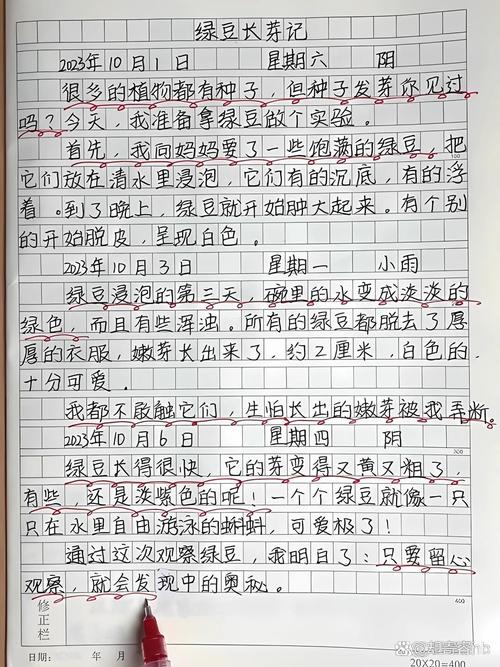 绿豆长芽记
2023年10月1日 星期六 阴
很多的植物都有种子，但种子发芽你见过
吗？今天，我准备拿绿豆做个实验。
首先，我向妈妈要了一些饱满的绿豆，把
它们放在清水里浸泡，它们有的沉底，有的浮
着。到了晚上，绿豆就开始肿大起来。有个别
的开始脱皮，呈现白色。
100
2023年10月3日 星期一 小雨
绿豆浸泡的第三天，碗里的水变成淡淡的
绿色，而且有些浑浊。所有的绿豆都脱去了厚
厚的衣服，嫩芽长出来了，约2厘米，白色的，
十分可爱。
我都不敢触它们，生怕长出的嫩芽被我弄断。
2023年10月6日 星期四 阴
300
绿豆长得很快，它的芽变得又黄又粗了，
有些，还是淡紫色的呢！一个个绿豆就像一只
只在水里自由游泳的蝌蚪，可爱极了！
通过这次观察绿豆，我明白了：只要留心
观察，就会发现中的奥秘。
400
修正栏
日期： 年 月
20×20=400